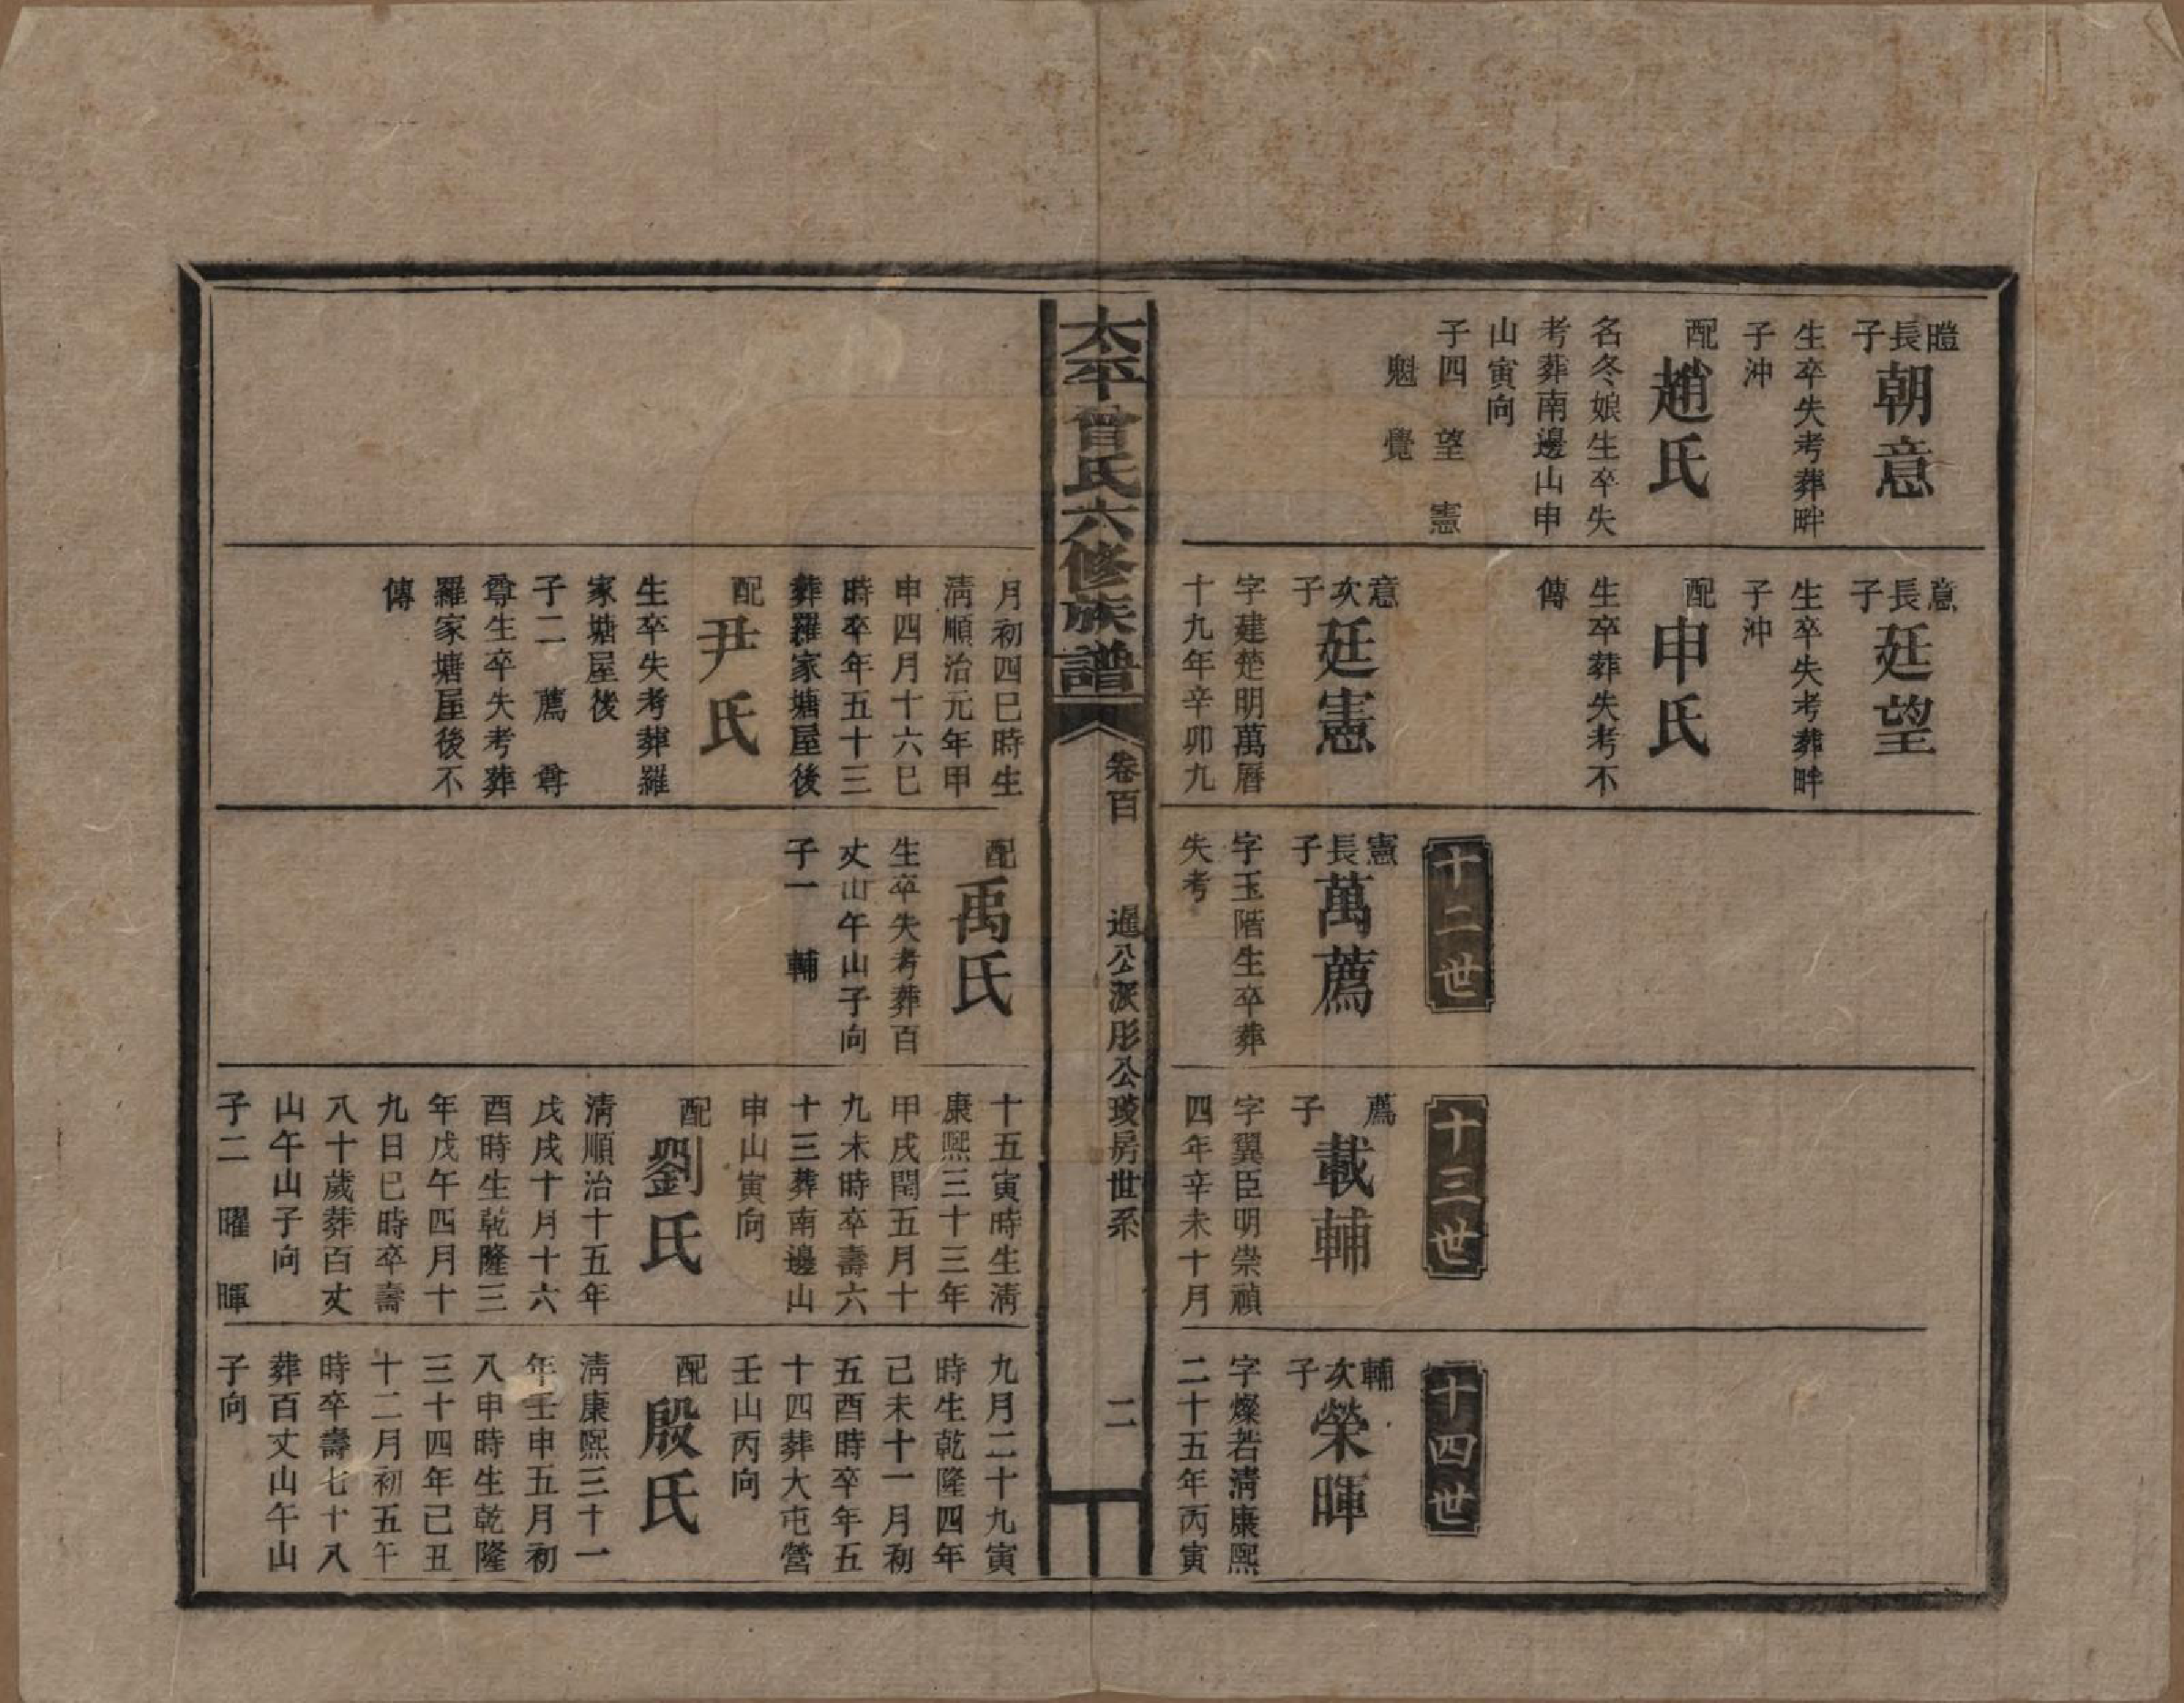 朝意
長子
生卒失考葬畔
子沖
配
趙氏
名冬娘生卒失
考葬南邊山申
山寅向
子四 望 憲
魁 覺
意長子
廷望
生卒失考葬畔
子沖
配
申氏
生卒葬失考不
傳
意次子
廷憲
字建楚明萬曆
十九年辛卯九
十二世
憲長子
萬薦
字玉階生卒葬
失考
十三世
薦子
載輔
字翼臣明崇禎
四年辛未十月
十四世
輔次子
榮暉
字燦若清康熙
二十五年丙寅
太平曾氏六修族譜
卷百
暹公派彤公琰房世系
二
月初四巳時生
清順治元年甲
申四月十六巳
時卒年五十三
葬羅家塘屋後
配
尹氏
生卒失考葬羅
家塘屋後
子二 薦 尊
尊生卒失考葬
羅家塘屋後不
傳
配
禹氏
生卒失考葬百
丈山午山子向
子一 輔
十五寅時生清
康熙三十三年
甲戌閏五月十
九未時卒壽六
十三葬南邊山
申山寅向
配
劉氏
清順治十五年
戊戌十月十六
酉時生乾隆三
年戊午四月十
九日巳時卒壽
八十歲葬百丈
山午山子向
子二 曜 暉
九月二十九寅
時生乾隆四年
己未十一月初
五酉時卒年五
十四葬大屯營
壬山丙向
配
殷氏
清康熙三十一
年壬申五月初
八申時生乾隆
三十四年己丑
十二月初五午
時卒壽七十八
葬百丈山午山
子向